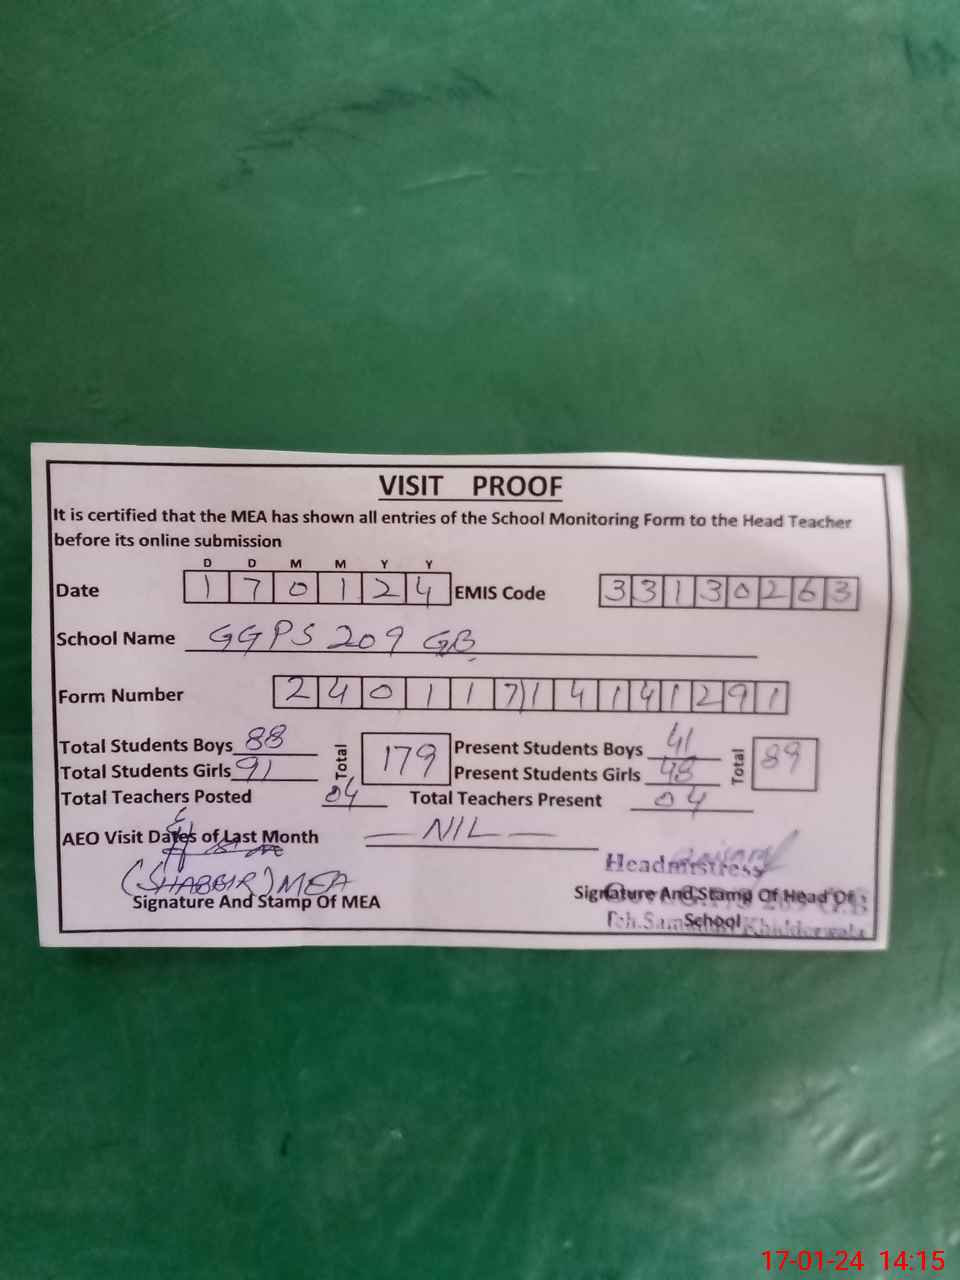 VISIT PROOF
It is certified that the MEA has shown all entries of the School Monitoring Form to the Head Teacher
before its online submission
D D M M Y Y
Date 1 7 0 1 2 4 EMIS Code 3 3 1 3 0 2 6 3
School Name GGPS 209 GB
Form Number 2 4 0 1 1 7 1 4 1 4 1 2 9 1
Total Students Boys 88 Total 179 Present Students Boys 41 Total 89
Total Students Girls 91 Present Students Girls 48
Total Teachers Posted 04 Total Teachers Present 04
AEO Visit Dates of Last Month — NIL —
Headmistress
(SHABBIR) MEA
Signature And Stamp Of MEA Signature And Stamp Of Head Of
School
17-01-24 14:15